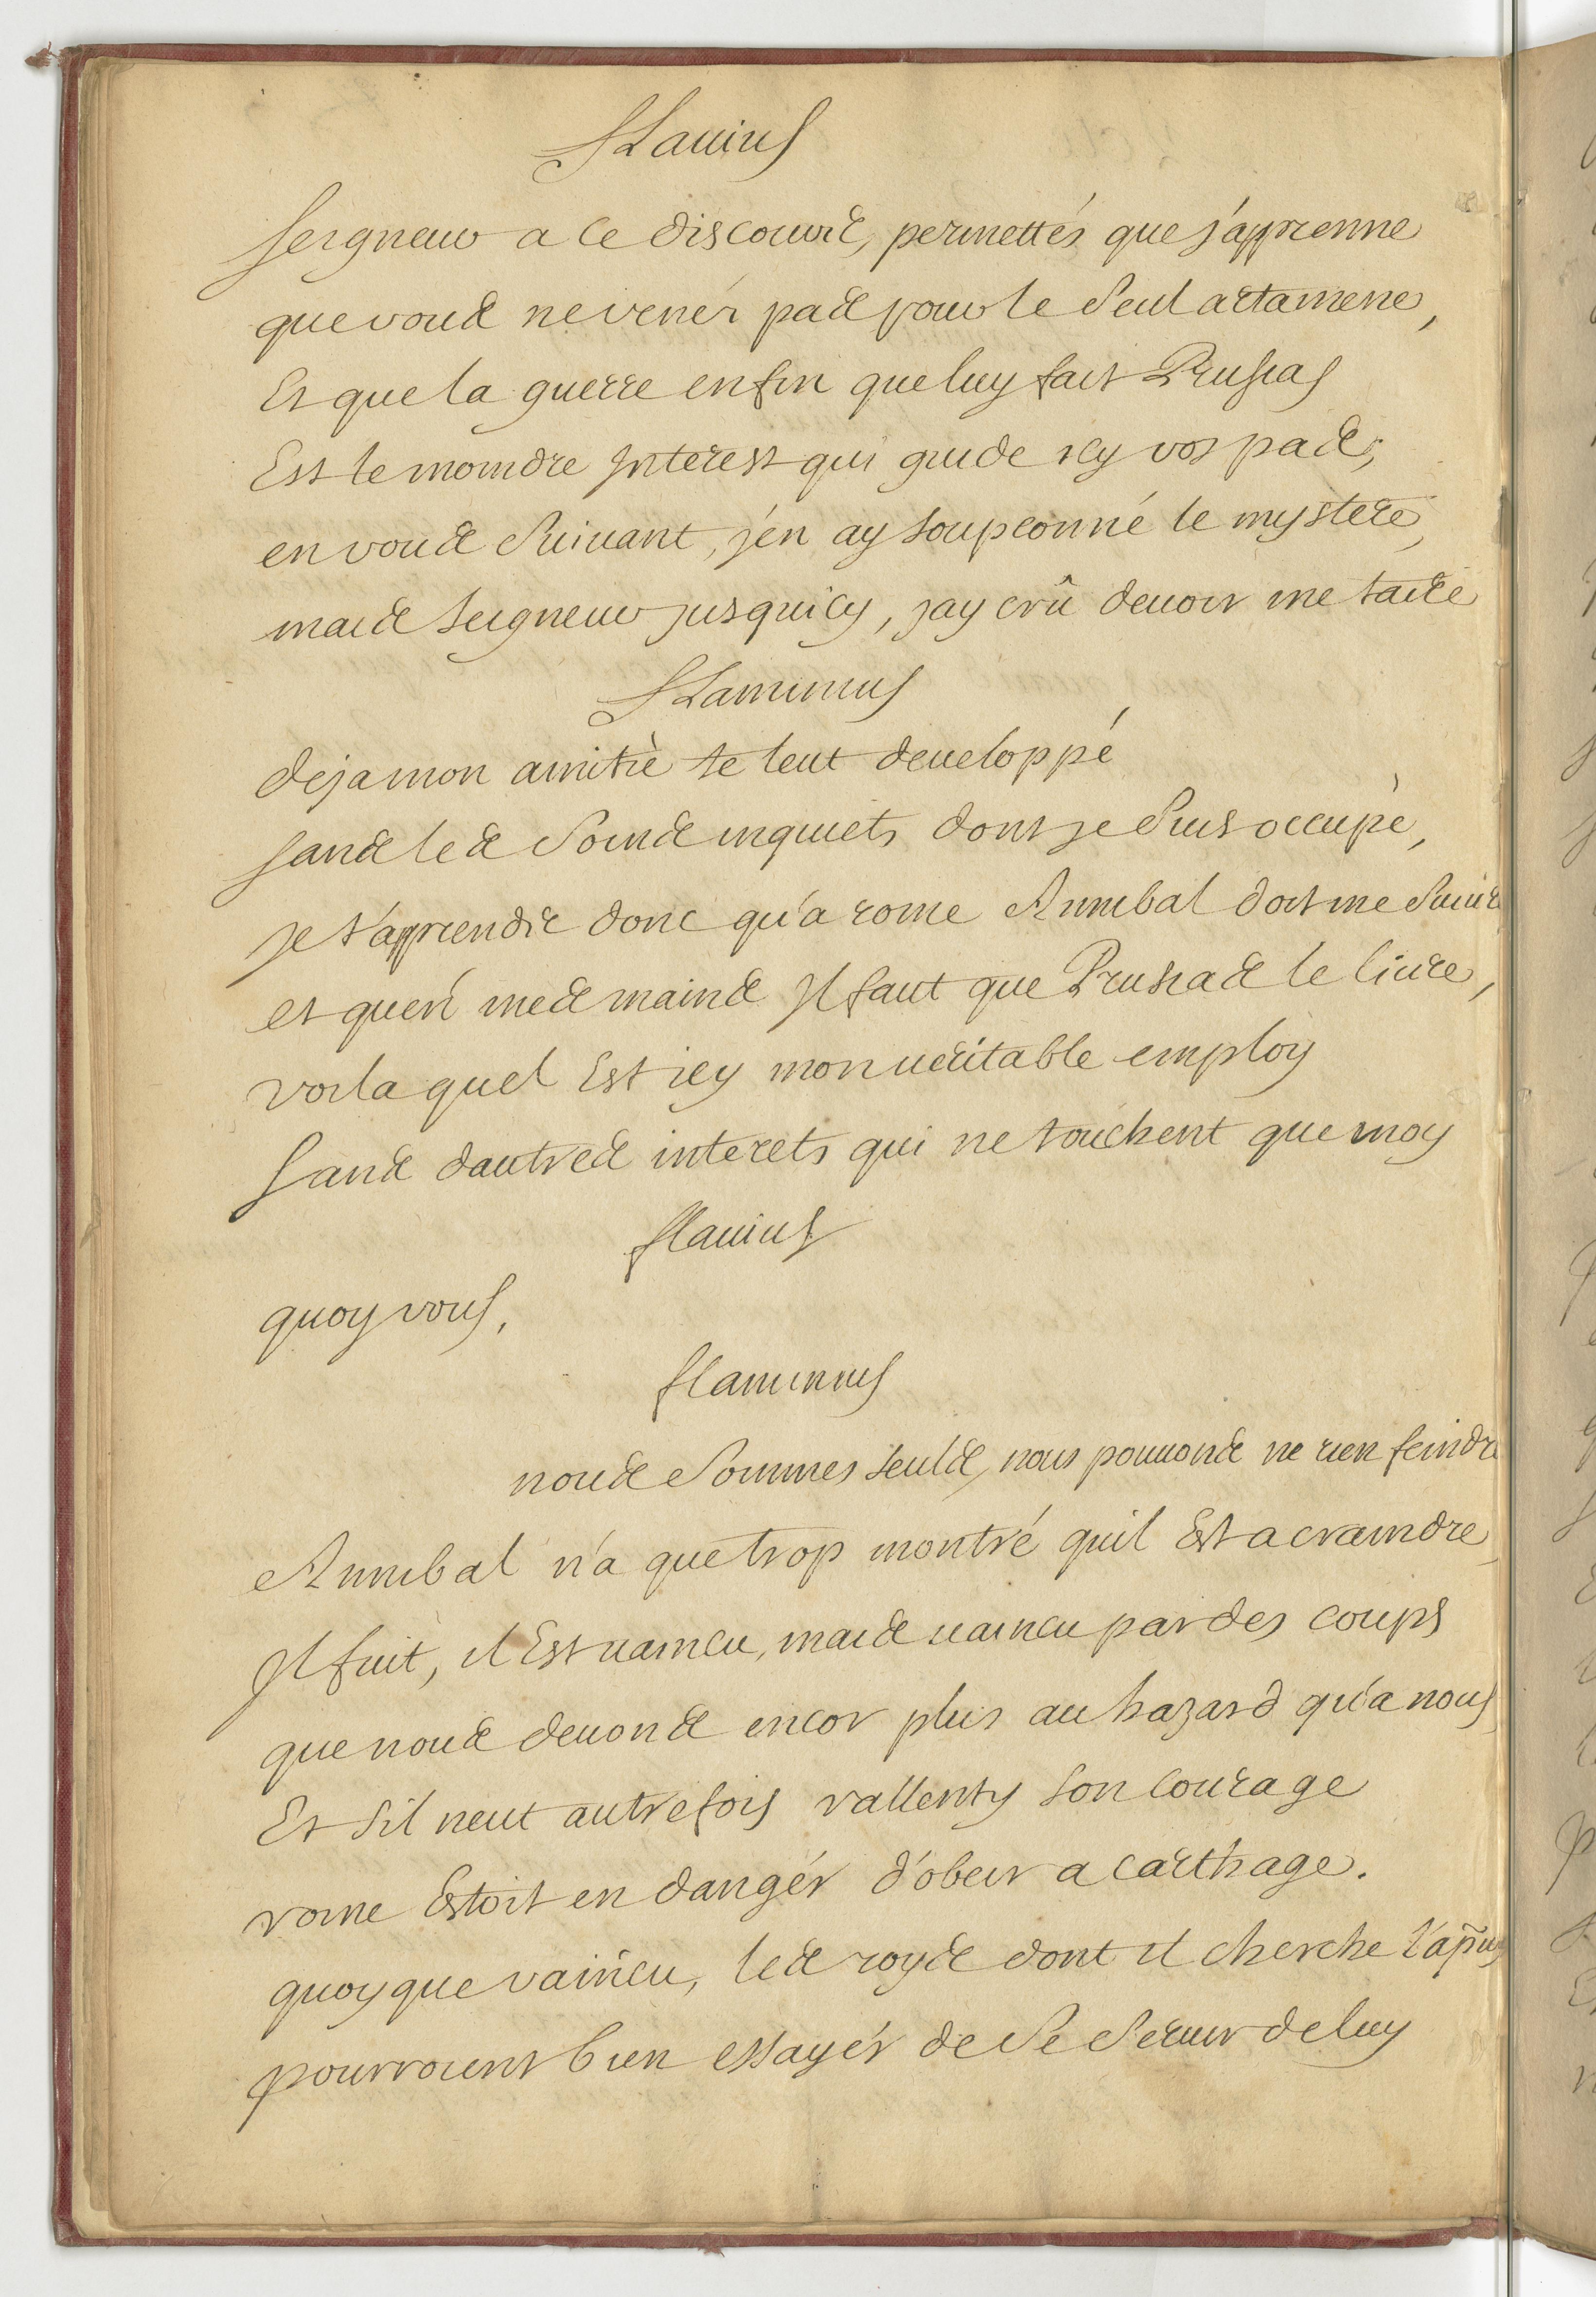 flauius
seigneur a ce discours, permettés que j'apprenne
que vous ne venés pas pour le seul artamene,
Et que la guerre enfin que luy fait Prusias
Est le moindre Interest qui guide icy vos pas;
en vous suiuant, j'en ay soupconné le mystere,
mais seigneur jusquicy, jay crû deuoir me taire
flaminius
deja mon amitiè te leut deueloppé
sans les soins inquiets dont je suis occupè,
je t'apprendré donc qu'a rome Annibal doit me suiure
et quen mes mains Il faut que Prusias le liure,
voila quel Est icy mon ueritable employ
sans dautres interets qui ne touchent que moy
flauius
quoy vous,
flaminius
nous sommes seuls, nous pouuons ne rien feindre
Annibal n'a que trop montré quil Est a craindre,
Il fuit, il Est uaincu, mais uaincu par des coups
que nous deuons encor plus au hazard qu'a nous
Et sil neut autrefois rallenty son courage
rome Estoit en dangér d'obeir a carthage.
quoyque vaincu, les roys dont il cherche l'apuy
pourroient bien essayér de se seruir de luy